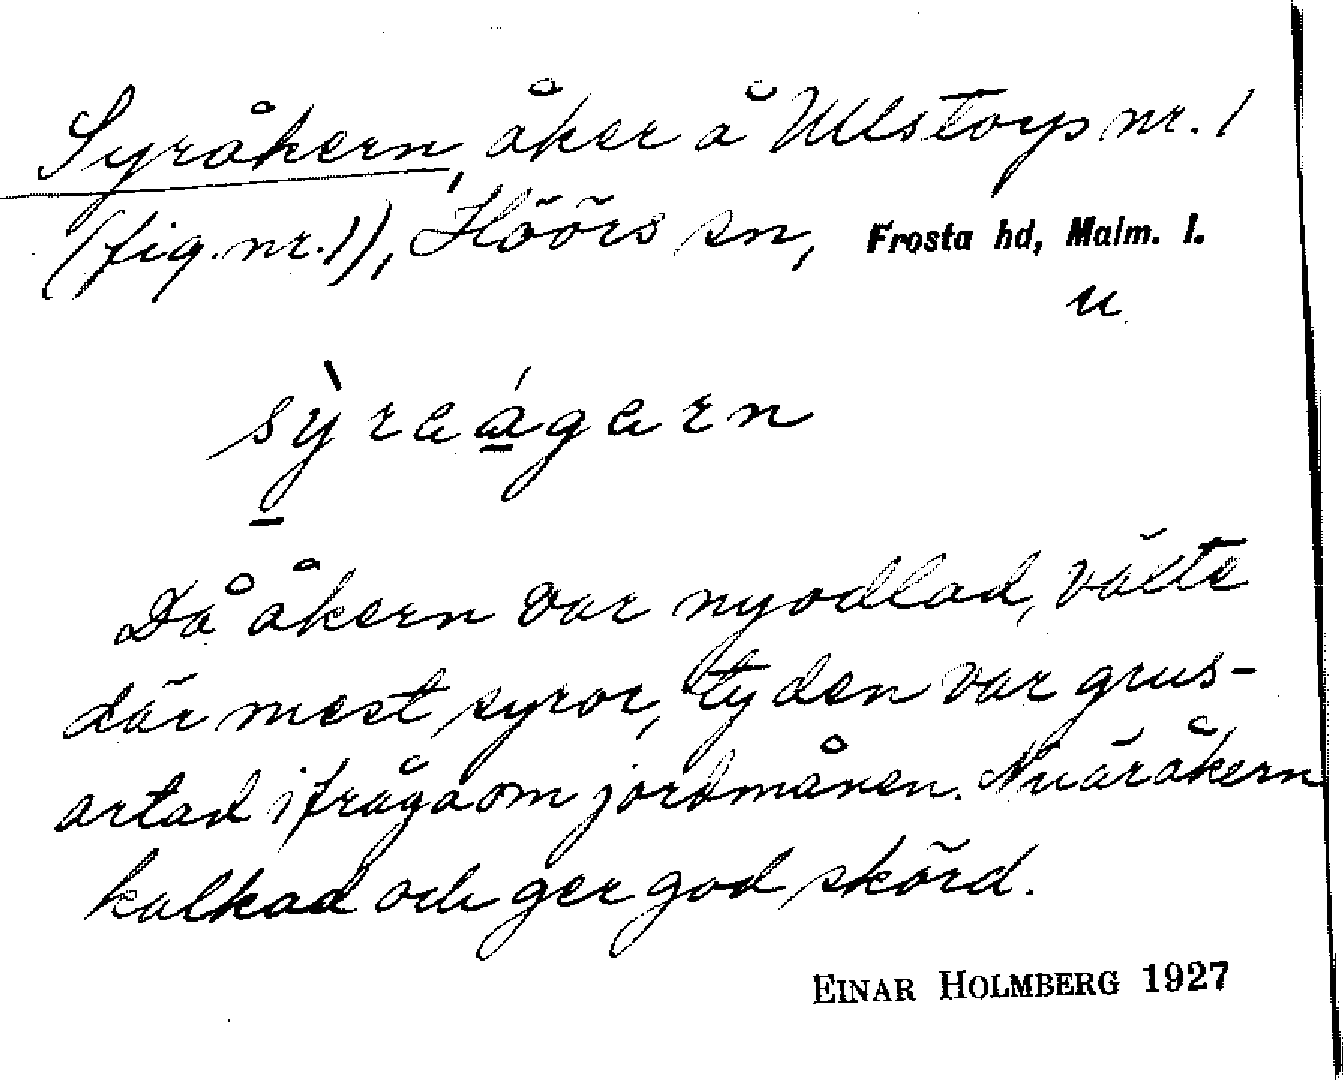 Syråkern, åker å Ullstorps nr. 1
(fig. nr. 1), Höörs sn, Frosta hd, Malm. l.
u
sỳraágarn
Då åkern var nyodlad, växte
där mest syror, ty den var grus-
artad ifråga om jordmånen. Nu är åkern
kalkad och ger god skörd.
EINAR HOLMBERG 1927